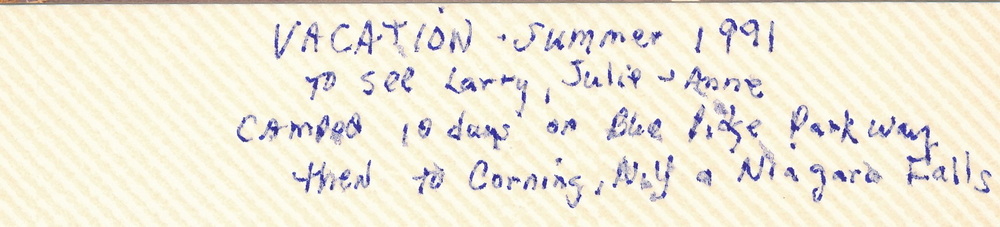 VACATION - Summer 1991
to see Larry, Julie & Anne
CAMPED 10 days on Blue Ridge Parkway
then to Corning, N.Y & Niagara Falls